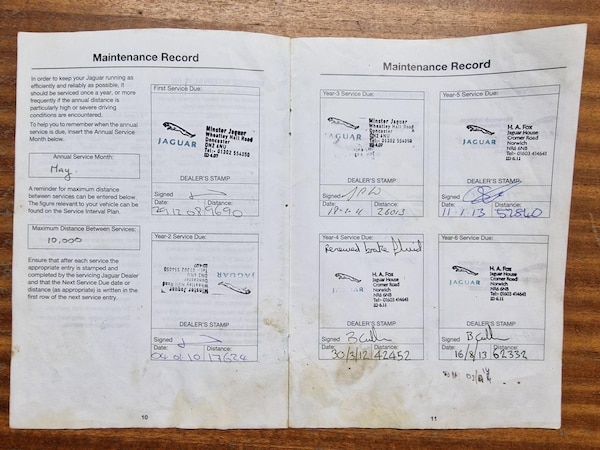 Maintenance Record
In order to keep your Jaguar running as
efficiently and reliably as possible, it
should be serviced once a year, or more
frequently if the annual distance is
particularly high or severe driving
conditions are encountered.
To help you to remember when the annual
service is due, insert the Annual Service
Month below.
Annual Service Month:
May
A reminder for maximum distance
between services can be entered below.
The figure relevant to your vehicle can be
found on the Service Interval Plan.
Maximum Distance Between Services:
10,000
Ensure that after each service the
appropriate entry is stamped and
completed by the servicing Jaguar Dealer
and that the Next Service Due date or
distance (as appropriate) is written in the
first row of the next service entry.
First Service Due:
JAGUAR
Minster Jaguar
Wheatley Hall Road
Doncaster
DN2 4NU
Tel:- 01302 554050
DEALER'S STAMP
Signed
Date: Distance:
29 12 08 9690
Year-2 Service Due:
JAGUAR
Minster Jaguar
Wheatley Hall Road
DEALER'S STAMP
Signed
Date: Distance:
04 01 10 17624
10
Maintenance Record
Year-3 Service Due:
JAGUAR
Minster Jaguar
Wheatley Hall Road
Doncaster
DN2 4NU
Tel:- 01302 554050
DEALER'S STAMP
Signed
Date: Distance:
26013
Year-4 Service Due:
renewed brake fluid
JAGUAR
H. A. Fox
Jaguar House
Cromer Road
Norwich
NR6 6NB
Tel:- 01603 414641
DEALER'S STAMP
Signed
Date: Distance:
30/3/12 42452
Year-5 Service Due:
JAGUAR
H. A. Fox
Jaguar House
Cromer Road
Norwich
NR6 6NB
Tel:- 01603 414641
DEALER'S STAMP
Signed
Date: Distance:
11-1-13 52840
Year-6 Service Due:
JAGUAR
H. A. Fox
Jaguar House
Cromer Road
Norwich
NR6 6NB
Tel:- 01603 414641
DEALER'S STAMP
Signed
Date: Distance:
16/8/13 62332
11